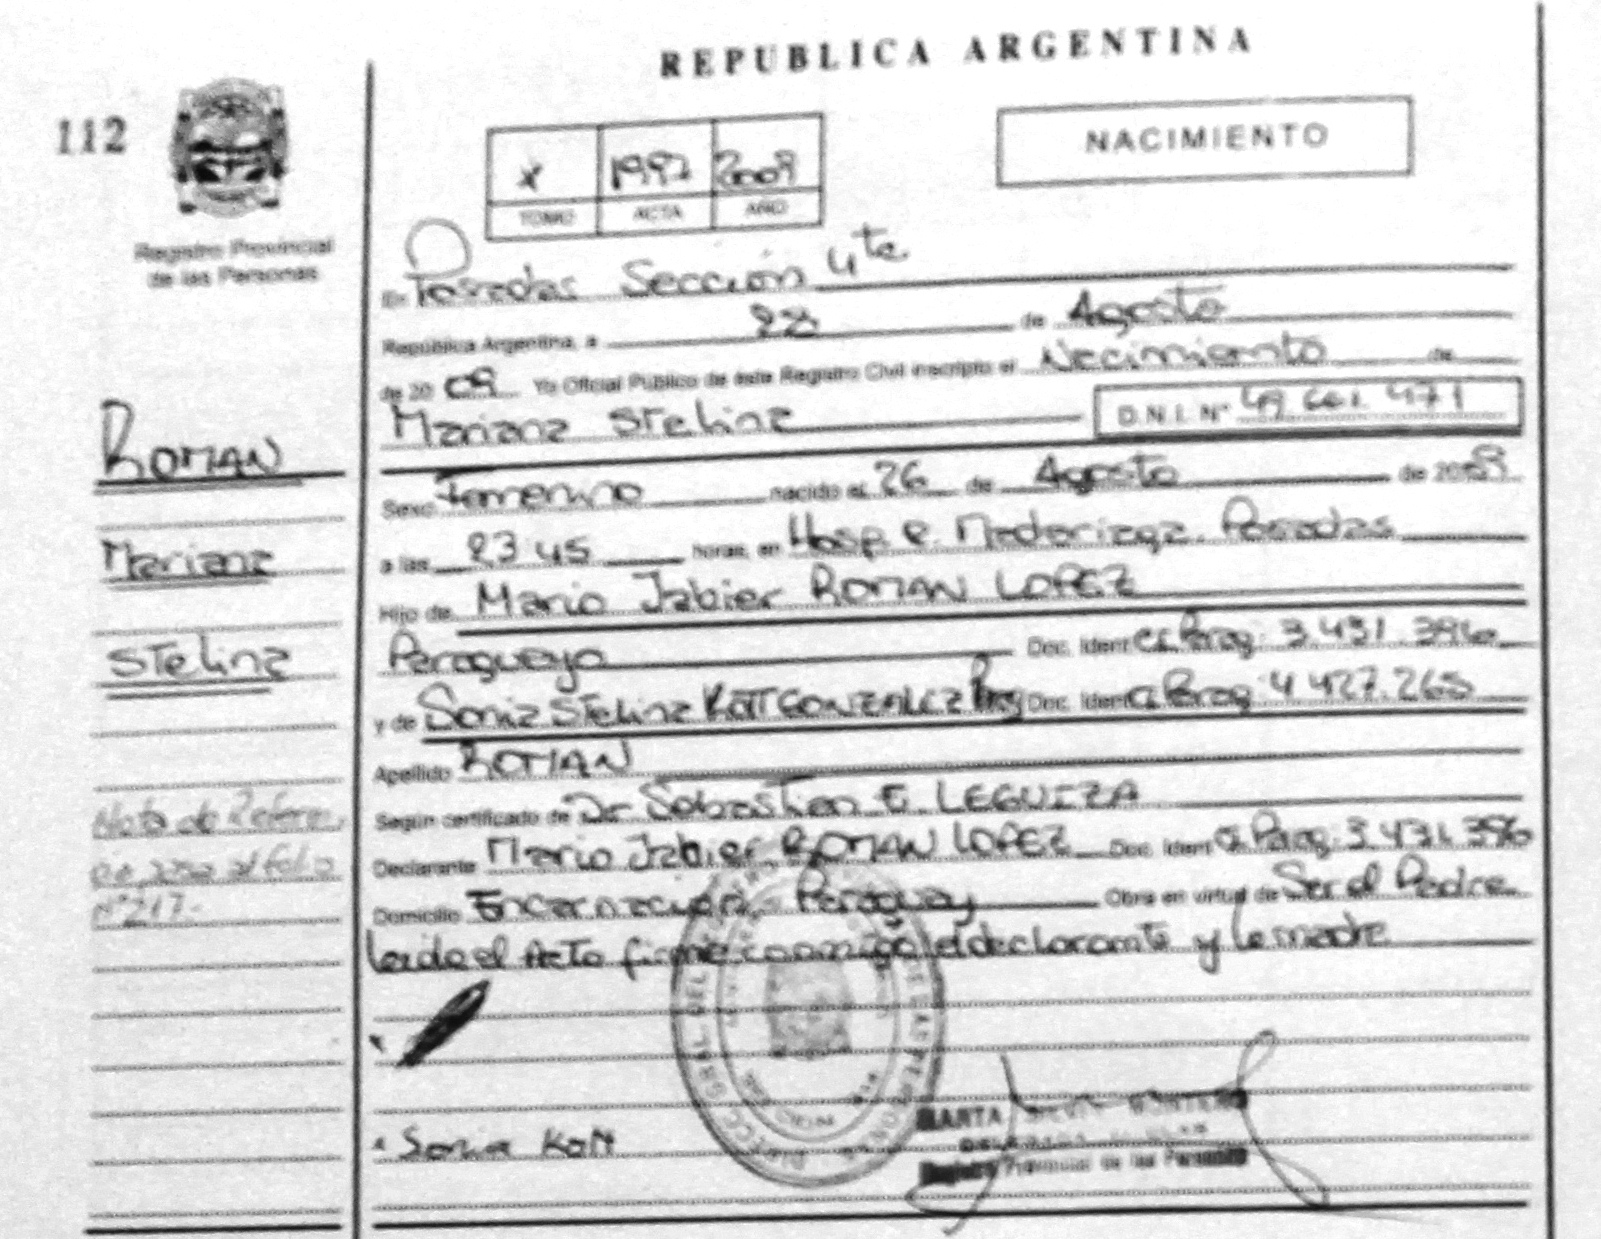 REPUBLICA ARGENTINA
112
NACIMIENTO
1997 2009
TOMO ACTA AÑO
Registro Provincial
de las Personas
En Posadas Sección 4ta
República Argentina, a 28 de Agosto
de 2009 Yo Oficial Público de éste Registro Civil inscripto el Nacimiento de
Mariana Stelina D.N.I. Nº 49 661 471
ROMAN
Mariana
Stelina
Sexo Femenino nacido el 26 de Agosto de 2009
a las 23 45 horas, en Hosp. R. Madariaga. Posadas
Hijo de Mario Jabier ROMAN LOPEZ
Paraguayo Doc. Ident CI. Parag: 3.431.396
y de Sonia Stelina KOTT GONZALEZ Prgy Doc. Ident CI Parag: 4 427.265
Apellido ROMAN
Según certificado de Dr Sebastian E. LEGUIZA
Declarante Mario Jabier ROMAN LOPEZ Doc. Ident CI Parag: 3.431.396
Domicilio Encarnación, Paraguay Obra en virtud de Ser el Padre
Leida el Acta firma conmigo el declarante y la madre
Nota de Refere
al folio
Nº 217.-
Sonia Kott
MARTA
Registro Provincial de las Personas